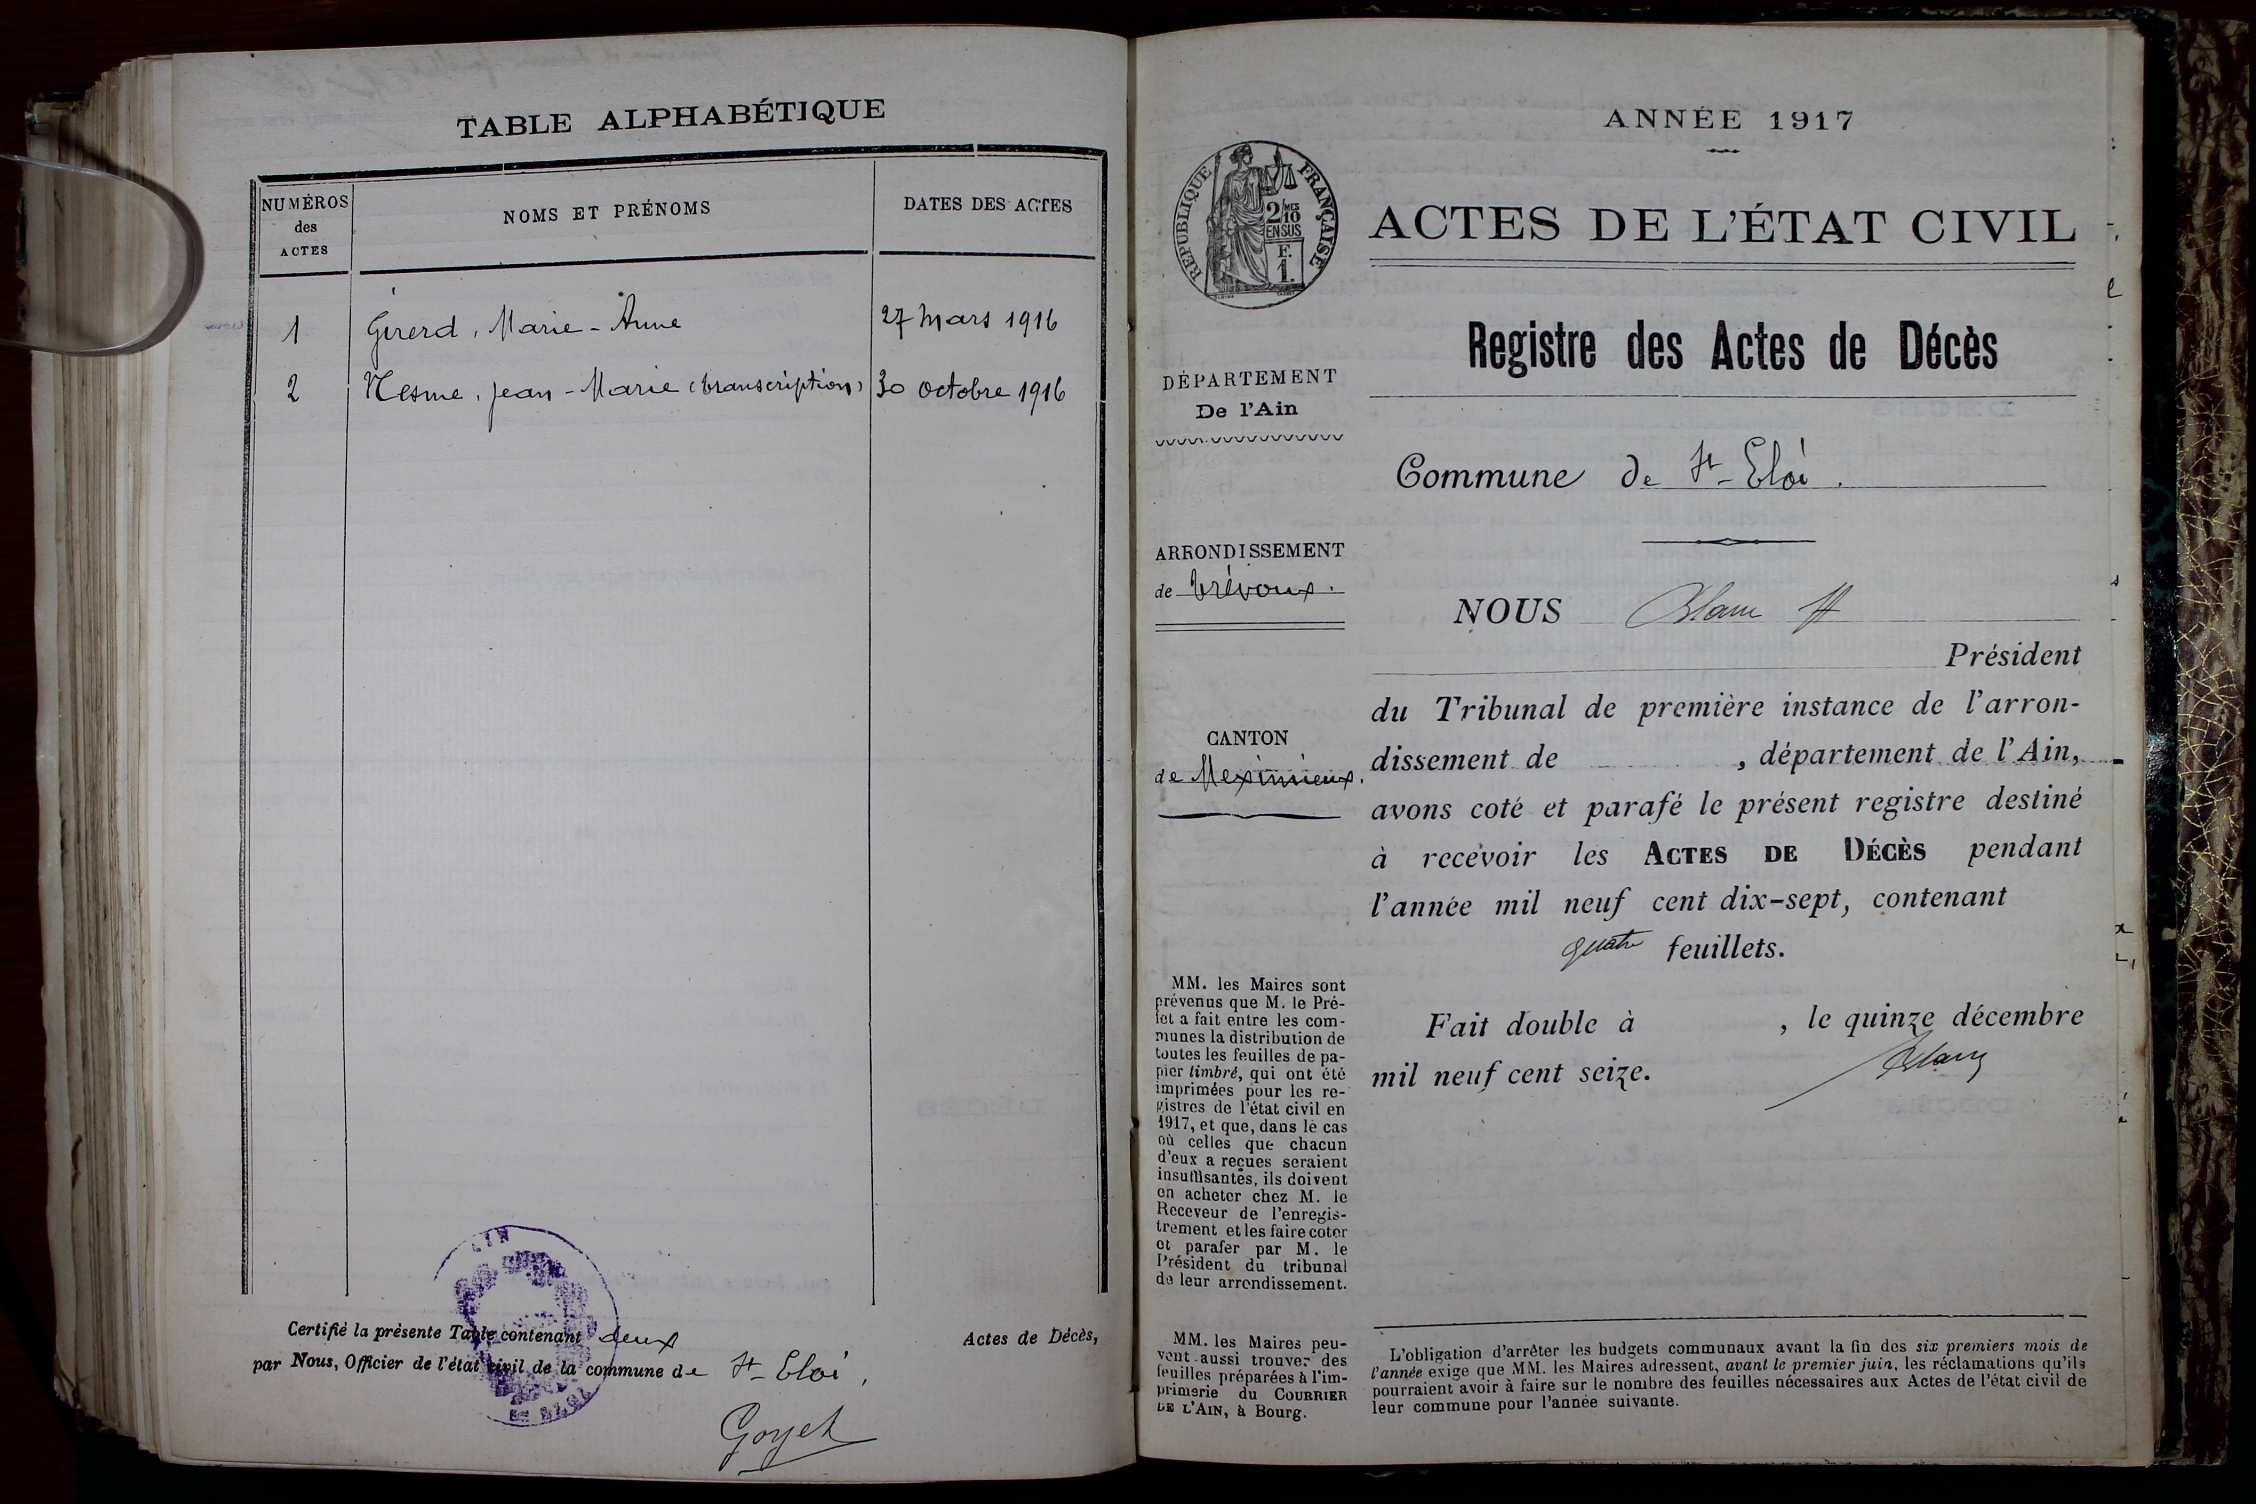 TABLE ALPHABÉTIQUE
NUMÉROS
des
ACTES
NOMS ET PRÉNOMS
DATES DES ACTES
1 Girerd, Marie-Anne 27 Mars 1916
2 Nesme, Jean-Marie (transcription) 30 octobre 1916
Certifié la présente Table contenant deux Actes de Décès,
par Nous, Officier de l'état civil de la commune de St-Eloi,
Goyet
ANNÉE 1917
RÉPUBLIQUE FRANÇAISE
2/10 MES
EN SUS
F.
1.
ACTES DE L'ÉTAT CIVIL
Registre des Actes de Décès
DÉPARTEMENT
De l'Ain
Commune de St-Eloi.
ARRONDISSEMENT
de Trévoux.
CANTON
de Meximieux.
MM. les Maires sont
prévenus que M. le Pré-
fet a fait entre les com-
munes la distribution de
toutes les feuilles de pa-
pier timbré, qui ont été
imprimées pour les re-
gistres de l'état civil en
1917, et que, dans le cas
où celles que chacun
d'eux a reçues seraient
insuffisantes, ils doivent
en acheter chez M. le
Receveur de l'enregis-
trement et les faire coter
et parafer par M. le
Président du tribunal
de leur arrondissement.
MM. les Maires peu-
vent aussi trouver des
feuilles préparées à l'im-
primerie du COURRIER
DE L'AIN, à Bourg.
NOUS
Président
du Tribunal de première instance de l'arron-
dissement de , département de l'Ain,
avons coté et parafé le présent registre destiné
à recevoir les ACTES DE DÉCÈS pendant
l'année mil neuf cent dix-sept, contenant
quatre feuillets.
Fait double à , le quinze décembre
mil neuf cent seize.
L'obligation d'arrêter les budgets communaux avant la fin des six premiers mois de
l'année exige que MM. les Maires adressent, avant le premier juin, les réclamations qu'ils
pourraient avoir à faire sur le nombre des feuilles nécessaires aux Actes de l'état civil de
leur commune pour l'année suivante.